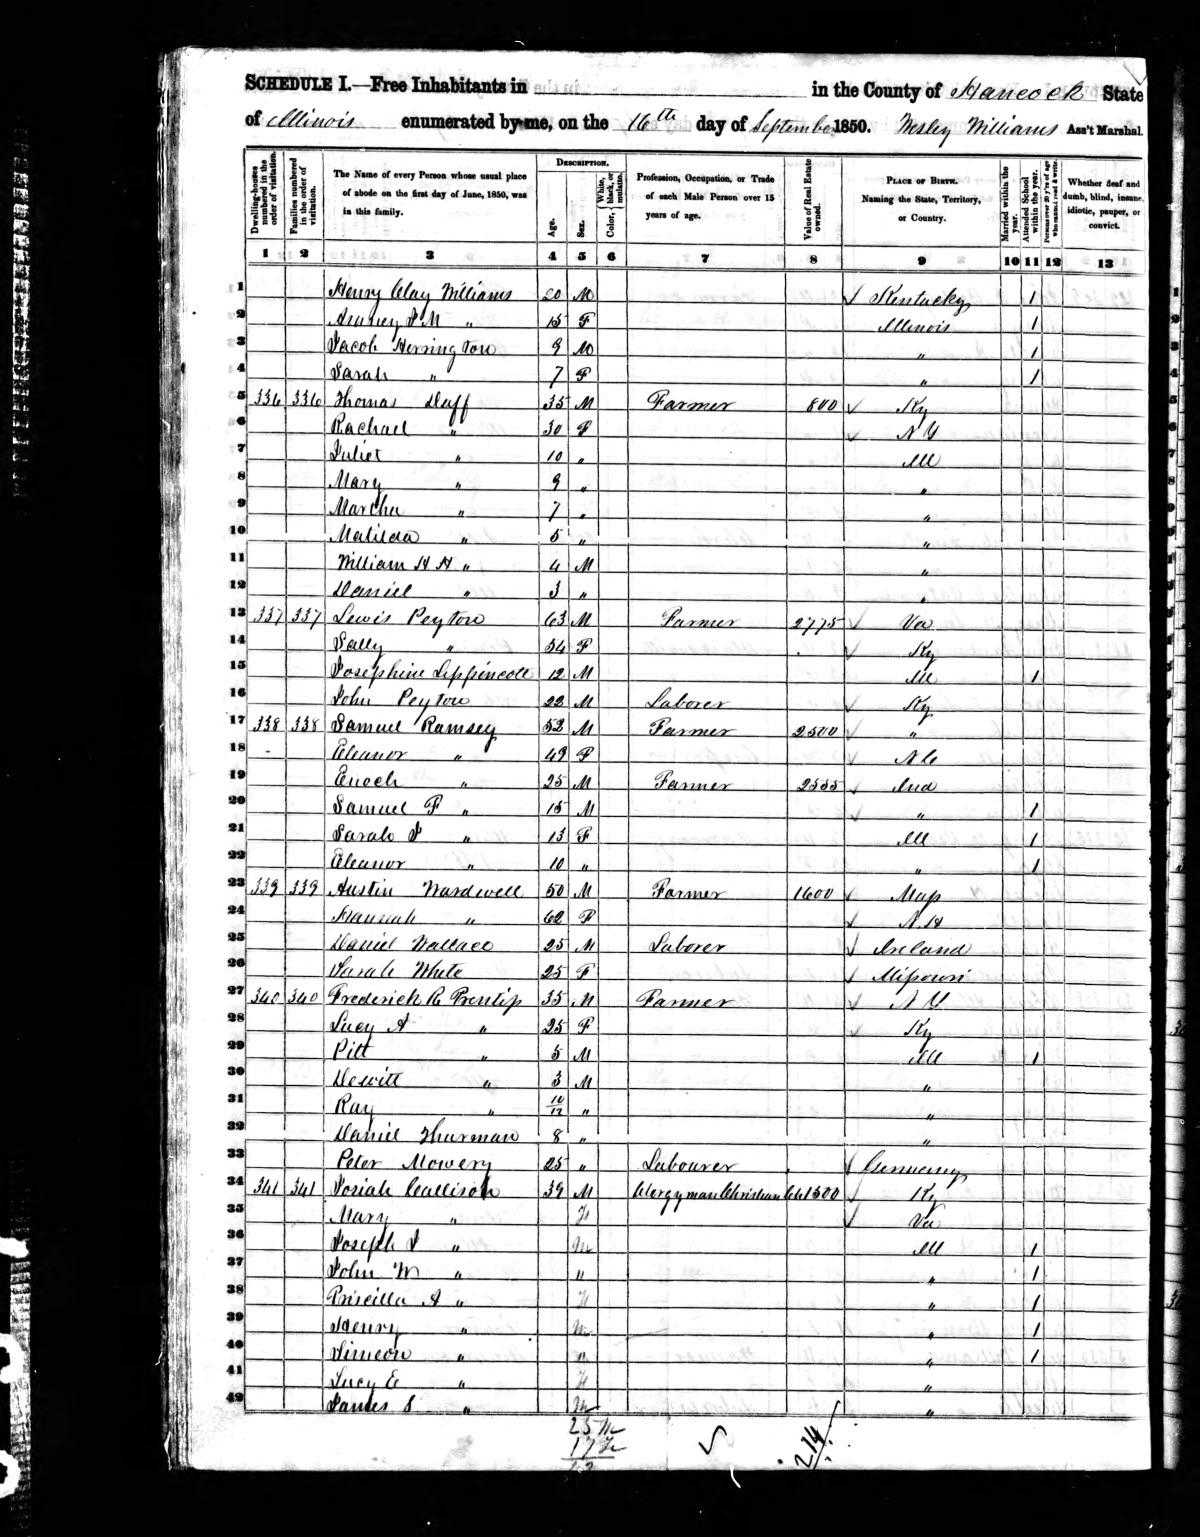 SCHEDULE I.—Free Inhabitants in in the County of Hancock State
of Illinois enumerated by me, on the 16th day of September 1850. Wesley Williams Ass't Marshal.
Dwelling-houses numbered in the order of visitation.
Families numbered in the order of visitation.
The Name of every Person whose usual place of abode on the first day of June, 1850, was in this family.
DESCRIPTION.
Age.
Sex.
Color, White, black, or mulatto.
Profession, Occupation, or Trade of each Male Person over 15 years of age.
Value of Real Estate owned.
PLACE OF BIRTH. Naming the State, Territory, or Country.
Married within the year.
Attended School within the year.
Persons over 20 y'rs of age who cannot read & write.
Whether deaf and dumb, blind, insane, idiotic, pauper, or convict.
1 2 3 4 5 6 7 8 9 10 11 12 13
1 Henry Clay Williams 20 M ✓ Kentucky 1
2 J M " 15 F Illinois 1
3 Jacob Herrington 9 M " 1
4 Sarah " 7 F " 1
5 336 336 Thomas Duff 35 M Farmer 800 ✓ Ky
6 Rachael " 30 F ✓ N Y
7 Juliet " 10 " Ill
8 Mary " 9 " "
9 Martha " 7 " "
10 Matilda " 5 " "
11 William H H " 4 M "
12 Daniel " 3 " "
13 337 337 Lewis Peyton 63 M Farmer 2775 ✓ Va
14 Sally " 54 F ✓ Ky
15 Josephine Lippincott 12 M Ill 1
16 John Peyton 22 M Laborer ✓ Ky
17 338 338 Samuel Ramsey 52 M Farmer 2500 ✓ "
18 Eleanor " 49 F ✓ N C
19 Enoch " 25 M Farmer 2555 ✓ Ind
20 Samuel F " 15 M ✓ " 1
21 Sarah J " 13 F Ill 1
22 Eleanor " 10 " " 1
23 339 339 Austin Wardwell 50 M Farmer 1600 ✓ Mass
24 Hannah " 62 F ✓ N.H
25 Daniel Wallace 25 M Laborer ✓ Ireland
26 Sarah White 25 F ✓ Missouri
27 340 340 Frederick R Prentiss 35 M Farmer ✓ N Y
28 Lucy A " 25 F ✓ Ky
29 Pitt " 5 M Ill 1
30 Dewitt " 3 M "
31 Ray " 10/12 " "
32 Daniel Thurman 8 " "
33 Peter Mowery 25 " Labourer ✓ Germany
34 341 341 Josiah Callison 39 M Clergyman Christian Ch 1500 ✓ Ky
35 Mary " F ✓ Va
36 Joseph J " M Ill 1
37 John W " " " 1
38 Priscilla A " F " 1
39 Henry " M " 1
40 Simeon " " " 1
41 Lucy E " F "
42 James S " M "
25 M
17 F
✓